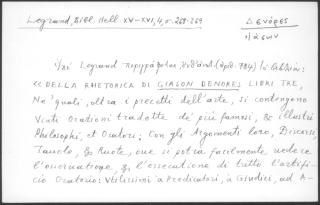 Legrand, Bibl. Hell. XV-XVI, 4, σ. 268-269
Δενόρες
Ἰάσων
Legrand περιγράφει,
« DELLA RHETORICA DI GIASON DENORES LIBRI TRE,
Ne' quali, oltra i precetti dell'arte, si contengono
Venti Orationi tradotte de' più famosi, & illustri
Philosophi, et Oratori: Con gli Argomenti loro, Discorsi,
Tauole, & Ruote, oue si potrà facilmente vedere
l'osseruatione, & l'essecutione di tutto l'artifi-
cio Oratorio: Vtilissimi a Predicatori, à Giudici, ad A-